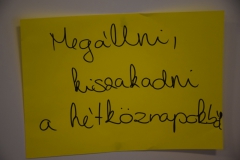 Megállni,
kiszakadni
a hétköznapokból